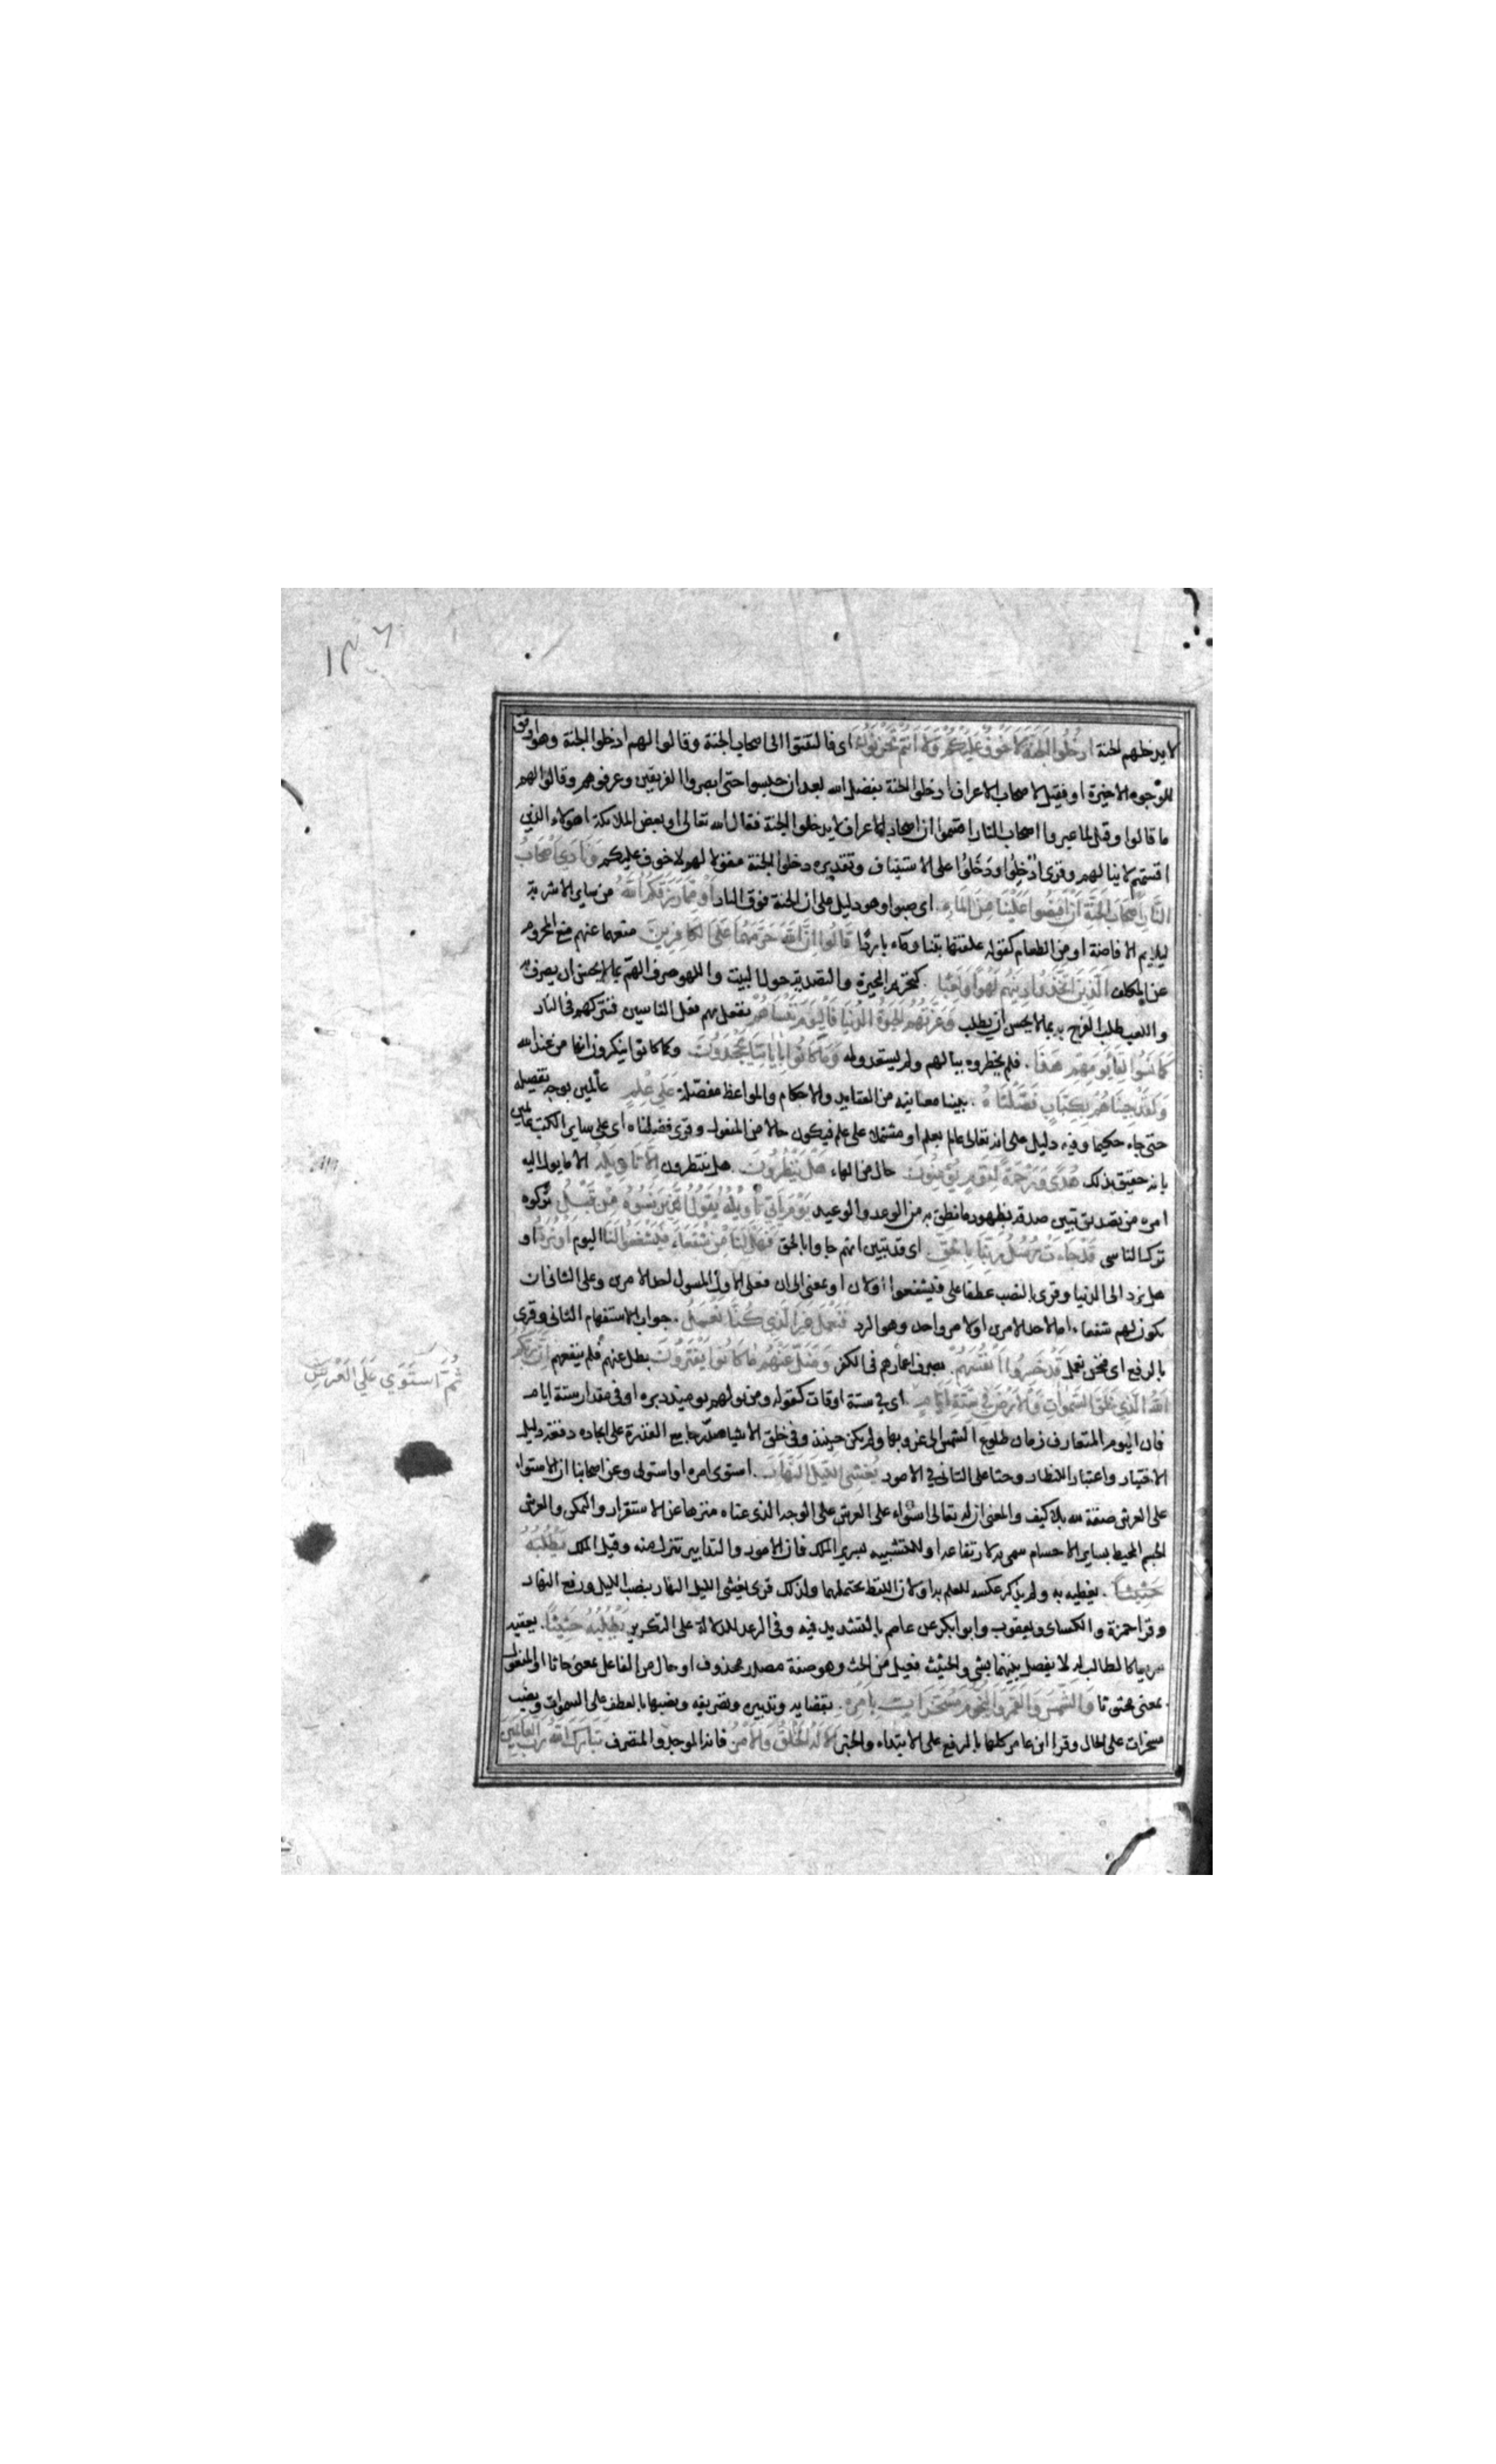 لا يدخلهم الجنة ادخلوا الجنة لا خوف عليكم ولا انتم تحزنون اى فالتفتوا الى اصحاب الجنة وقالوا لهم ادخلوا الجنة وهو اوفق
للوجوه الاخيرة او فقيل لاصحاب الاعراف ادخلوا الجنة بفضل الله بعد ان حبسوا حتى ابصروا الفريقين وعرفوهم وقالوا لهم
ما قالوا وقيل لما عيروا اصحاب النار اقسموا ان اصحاب الاعراف لا يدخلوا الجنة فقال الله تعالى او بعض الملائكة اهولاء الذين
اقسمتم لا ينالهم وقرى اُدْخِلُوا ودَخَلُوا على الاستيناف وتقديره دخلوا الجنة مقولا لهم لا خوف عليكم ونادى اصحاب
النار اصحاب الجنة ان افيضوا علينا من الماء اى صبوا وهو دليل على ان الجنة فوق النار او مما رزقكم الله من ساير الاشربة
ليلايم الافاضة او من الطعام كقوله علفتها تبنا وماء باردا قالوا ان الله حرمهما على الكافرين منعهما عنهم منع المحروم
عن المكلف الذين اتخذوا دينهم لهوا ولعبا كتحريم البحيرة والتصدية حول البيت واللهو صرف الهم بما لا يحسن ان يصرف به
واللعب طلب الفرح به بما لا يحسن ان يطلب وغرتهم الحيوة الدنيا فاليوم ننساهم نفعل بهم فعل الناسين فنتركهم فى النار
كما نسوا لقاء يومهم هذا فلم يخطروه ببالهم ولم يستعدوا له وما كانوا باياتنا يجحدون وكما كانوا ينكرون انها من عند الله
ولقد جئناهم بكتاب فصلناه بينا معانيه من العقايد والاحكام والمواعظ مفصلة على علم عالمين بوجه تفصيله
حتى جاء حكيما وفيه دليل على انه تعالى عالم بعلم او مشتملا على علم فيكون حالا من المفعول وقرى فضلناه اى على ساير الكتب عالمين
بانه حقيق بذلك هدى ورحمة لقوم يؤمنون حال من الهاء هل ينظرون هل ينتظرون الا تاويله الا ما يول اليه
امره من تصديق تبين صدقه بظهور ما نطق به من الوعد والوعيد يوم ياتى تاويله يقول الذين نسوه من قبل تركوه
ترك الناسى قد جاءت رسل ربنا بالحق اى قد تبين انهم جاوا بالحق فهل لنا من شفعاء فيشفعوا لنا اليوم او نرد او
هل نرد الى الدنيا وقرى بالنصب عطفا على فيشفعوا او لان او بمعنى الى ان فعلى الاول المسول احد الامرين وعلى الثانى ان
يكون لهم شفعاء اما لاحد الامرين او لامر واحد وهو الرد فنعمل غير الذى كنا نعمل جواب الاستفهام الثانى وقرى
بالرفع اى فنحن نعمل قد خسروا انفسهم بصرف اعمارهم فى الكفر وضل عنهم ما كانوا يفترون بطل عنهم فلم ينفعهم ان ربكم
الله الذى خلق السموات والارض فى ستة ايام اى فى ستة اوقات كقوله ومن يولهم يوميذ دبره او فى مقدار ستة ايام
فان اليوم المتعارف زمان طلوع الشمس الى غروبها ولم يكن حينئذ وفى خلق الاشيا مدرجا مع القدرة على ايجاده دفعة دليل
الاختيار واعتبار للنظار وحثا على التانى فى الامور يغشى الليل النهار استوى امره او استولى وعن اصحابنا ان الاستواء
على العرش صفة لله بلا كيف والمعنى ان له تعالى استواء على العرش على الوجه الذى عناه منزها عن الاستقرار والتمكن والعرش
الجسم المحيط بساير الاجسام سمى به لارتفاعه او للتشبيه بسرير الملك فان الامور والتدابير تنزل منه وقيل الملك يطلبه
حثيثا يغطيه به ولم يذكر عكسه للعلم به او لان اللفظ يحتملهما ولذلك قرى يغشى الليل النهار بنصب الليل ورفع النهار
وقرا حمزة والكساى ويعقوب وابو بكر عن عاصم بالتشديد فيه وفى الرعد للدلالة على التكرير يطلبه حثيثا يعقبه
سريعا كالطالب له لا يفصل بينهما بشى والحثيث فعيل من الحث وهو صفة مصدر محذوف او حال من الفاعل بمعنى حاثا او المفعول
بمعنى محثوثا والشمس والقمر والنجوم مسخرات بامره بقضايه وتدبيره وتصريفه ونصبها بالعطف على السموات ونصب
مسخرات على الحال وقرا ابن عامر كلها بالرفع على الابتداء والخبر الا له الخلق والامر فانه الموجد والمتصرف تبارك الله رب العالمين
ثم استوى على العرش